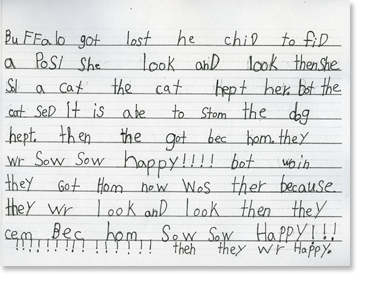 BuFFalo got lost he chiD to fiD
a PoSl She look anD look then She
Sol a cat the cat hept her. bot the
cat SeD It is abe to Stom the dog
hept. then the got bec hom. they
wr Sow Sow happy!!!! bot
they Got Hom now Wos ther because
they wr look anD look then they
cem Bec hom Sow Sow HaPPy!!!
!!!!!!!!!!!!!!! then they wr Happy.